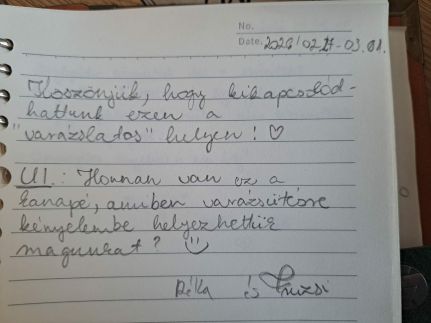 No.
Date. 2026/02.27-03.01.
Köszönjük, hogy kikapcsolód-
hattunk ezen a
"varázslatos" helyen! ♡
UI.: Honnan van ez a
kanapé, amiben varázsütésre
kényelembe helyezhettük
magunkat? ☺
Réka és Fruzsi